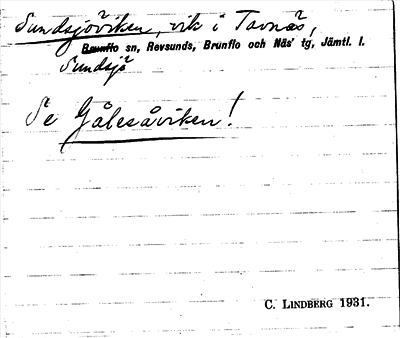 Sundsjöviken, vik i Tavnäs,
Brunflo sn, Revsunds, Brunflo och Näs' tg, Jämtl. l.
Sundsjö
Se Gålesåviken!
C. LINDBERG 1931.